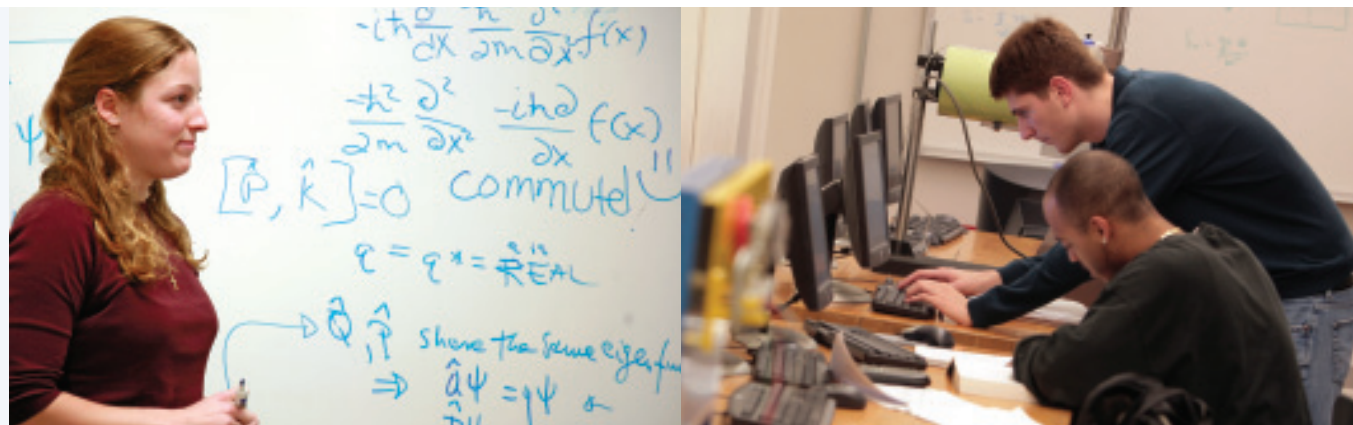 -iħ ∂/∂x -ħ/2m ∂²/∂x² f(x)
ψ
-ħ²/2m ∂²/∂x² -iħ∂/∂x f(x)
[P̂, K̂]=0 commute!
q = q* = "REAL"
Q̂, P̂ share the same eigenfun
⇒ q̂ψ = qψ
p̂ψ